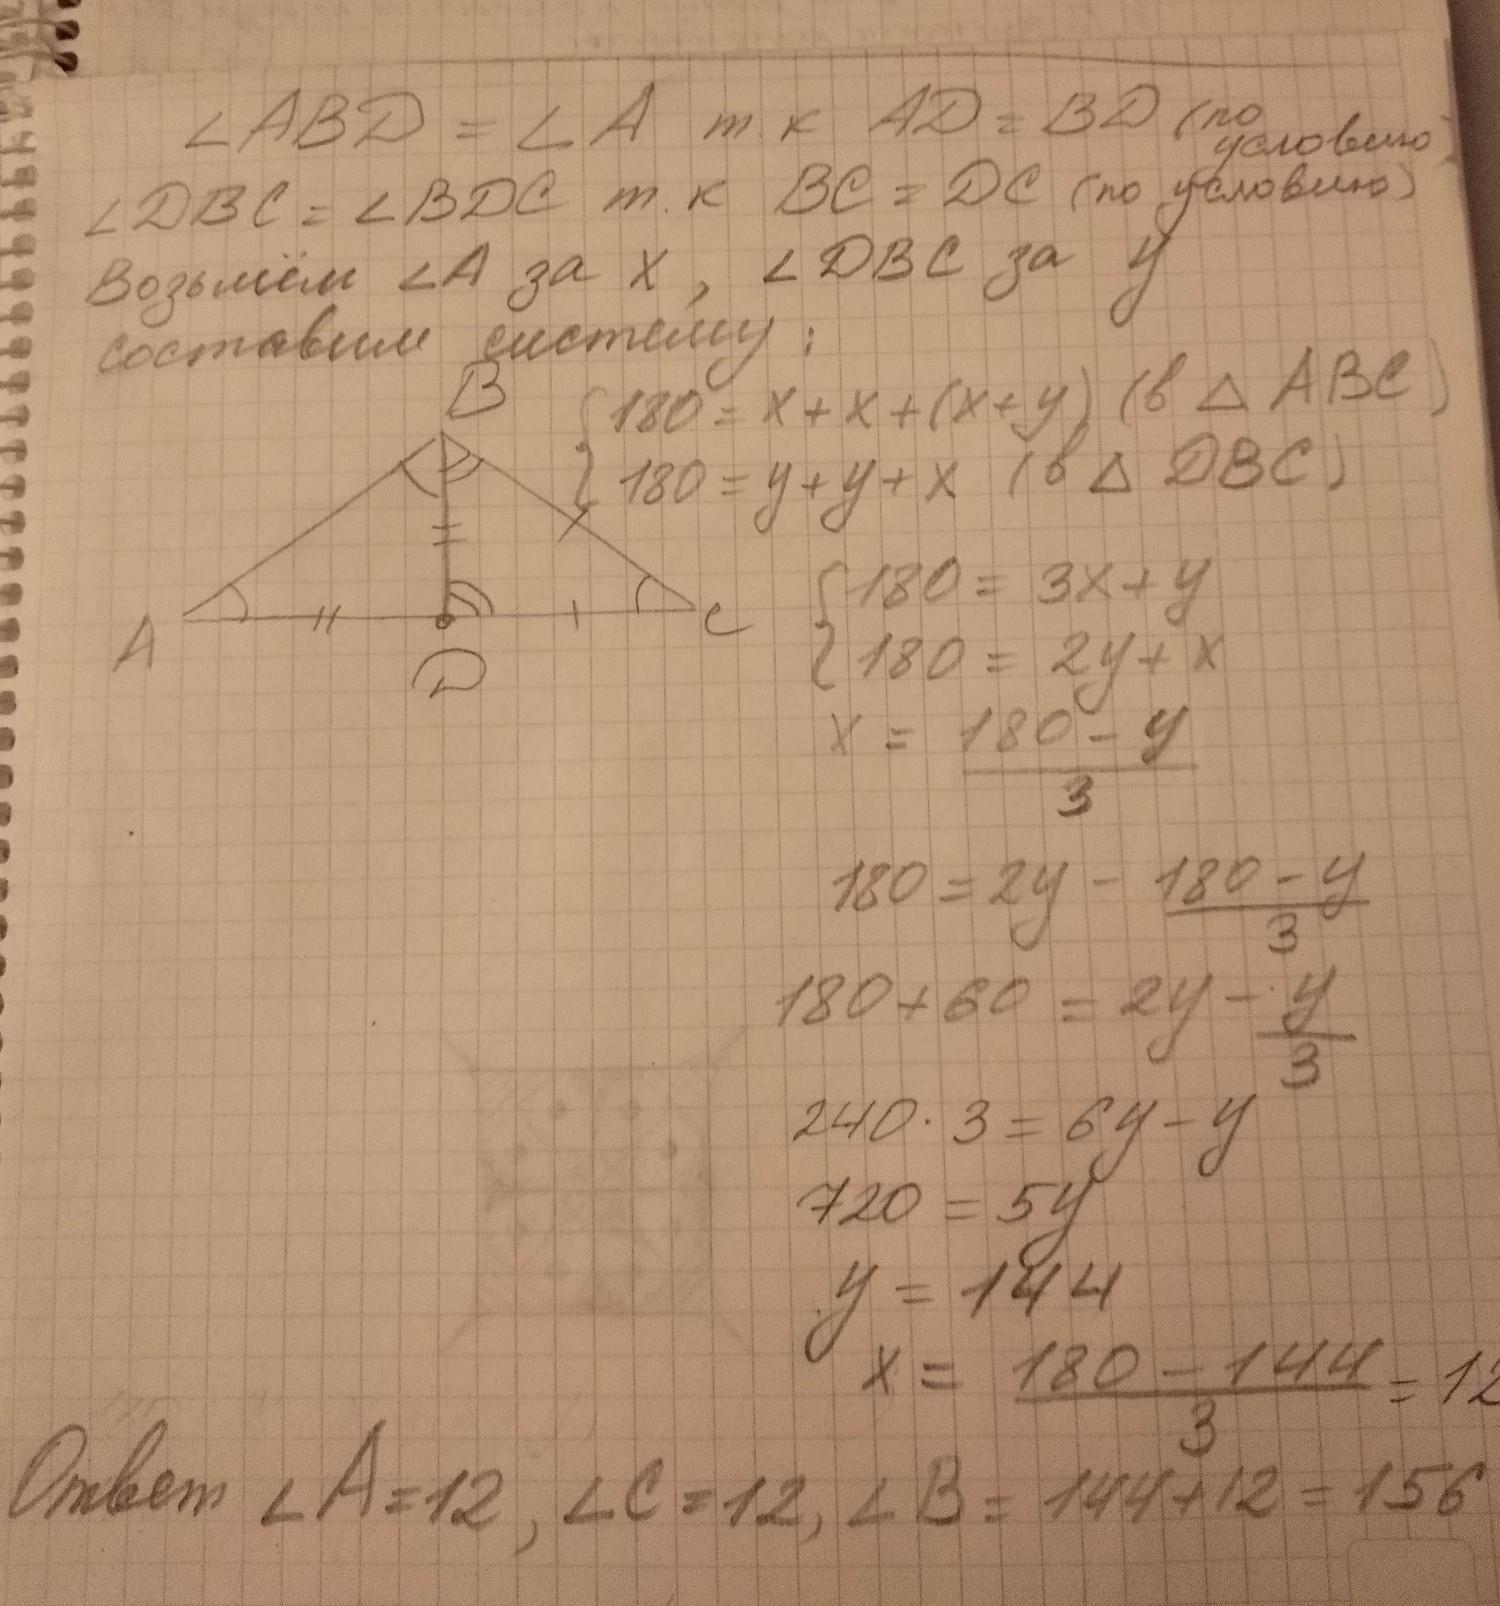 ∠ABD = ∠A т.к AD = BD (по условию)
∠DBC = ∠BDC т.к BC = DC (по условию)
Возьмём ∠A за x, ∠DBC за y
составим систему:
B
{180 = x + x + (x+y) (в △ ABC)
{180 = y + y + x (в △ DBC)
A
C
D
{180 = 3x + y
{180 = 2y + x
x = (180 - y)/3
180 = 2y - (180 - y)/3
180 + 60 = 2y - y/3
240 · 3 = 6y - y
720 = 5y
y = 144
x = (180 - 144)/3 = 12
Ответ ∠A = 12, ∠C = 12, ∠B = 144+12 = 156